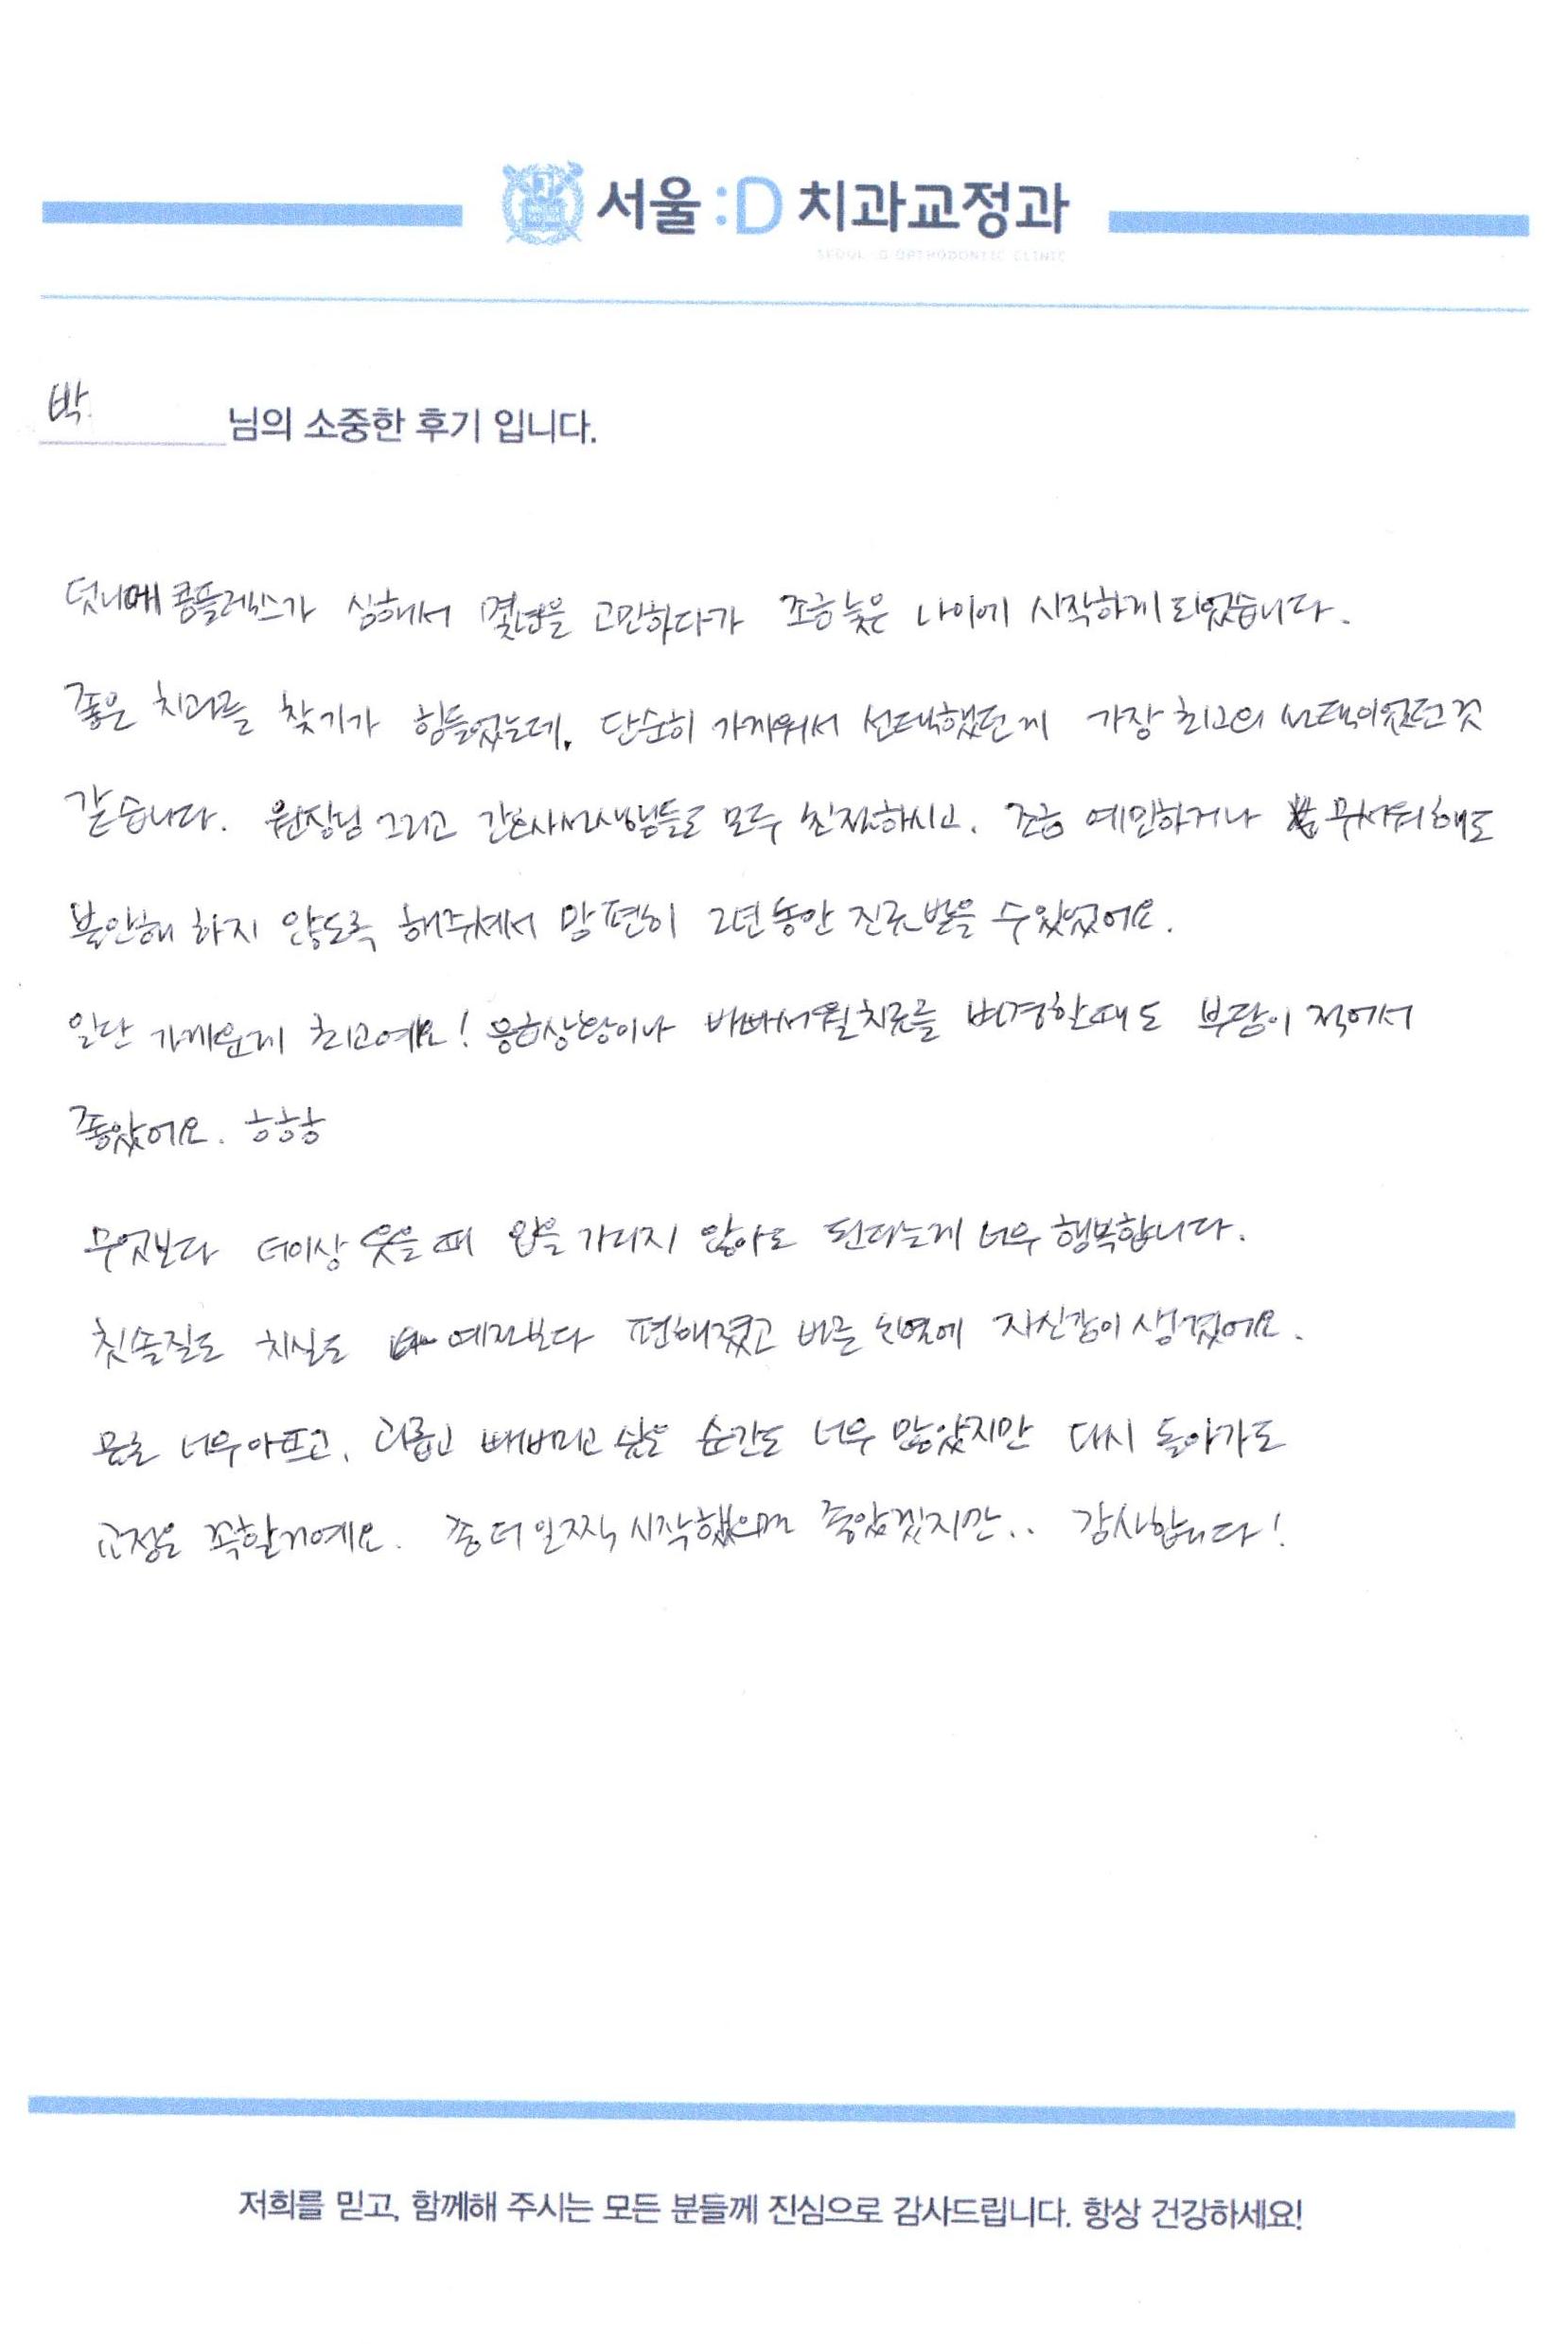 서울:D 치과교정과
SEOUL :D ORTHODONTIC CLINIC
박 님의 소중한 후기 입니다.
덧니에 콤플렉스가 심해서 몇년을 고민하다가 조금 늦은 나이에 시작하게 되었습니다.
좋은 치과를 찾기가 힘들었는데, 단순히 가까워서 선택했던게 가장 최고의 선택이었던것
같습니다. 원장님 그리고 간호사선생님들도 모두 친절하시고, 조금 예민하거나 무서워해도
불안해 하지 않도록 해주셔서 맘 편히 2년동안 진료받을 수 있었어요.
일단 가까운게 최고예요! 응급상황이나 바빠서 월치료를 변경할때도 부담이 적어서
좋았어요. ㅎㅎㅎ
무엇보다 더이상 웃을 때 입을 가리지 않아도 된다는게 너무 행복합니다.
칫솔질도 치실도 예전보다 편해졌고 바른 치열에 자신감이 생겼어요.
물론 너무 아프고, 괴롭고 빼버리고 싶은 순간도 너무 많았지만 다시 돌아가도
교정은 꼭할거예요. 좀 더 일찍 시작했으면 좋았겠지만.. 감사합니다!
저희를 믿고, 함께해 주시는 모든 분들께 진심으로 감사드립니다. 항상 건강하세요!